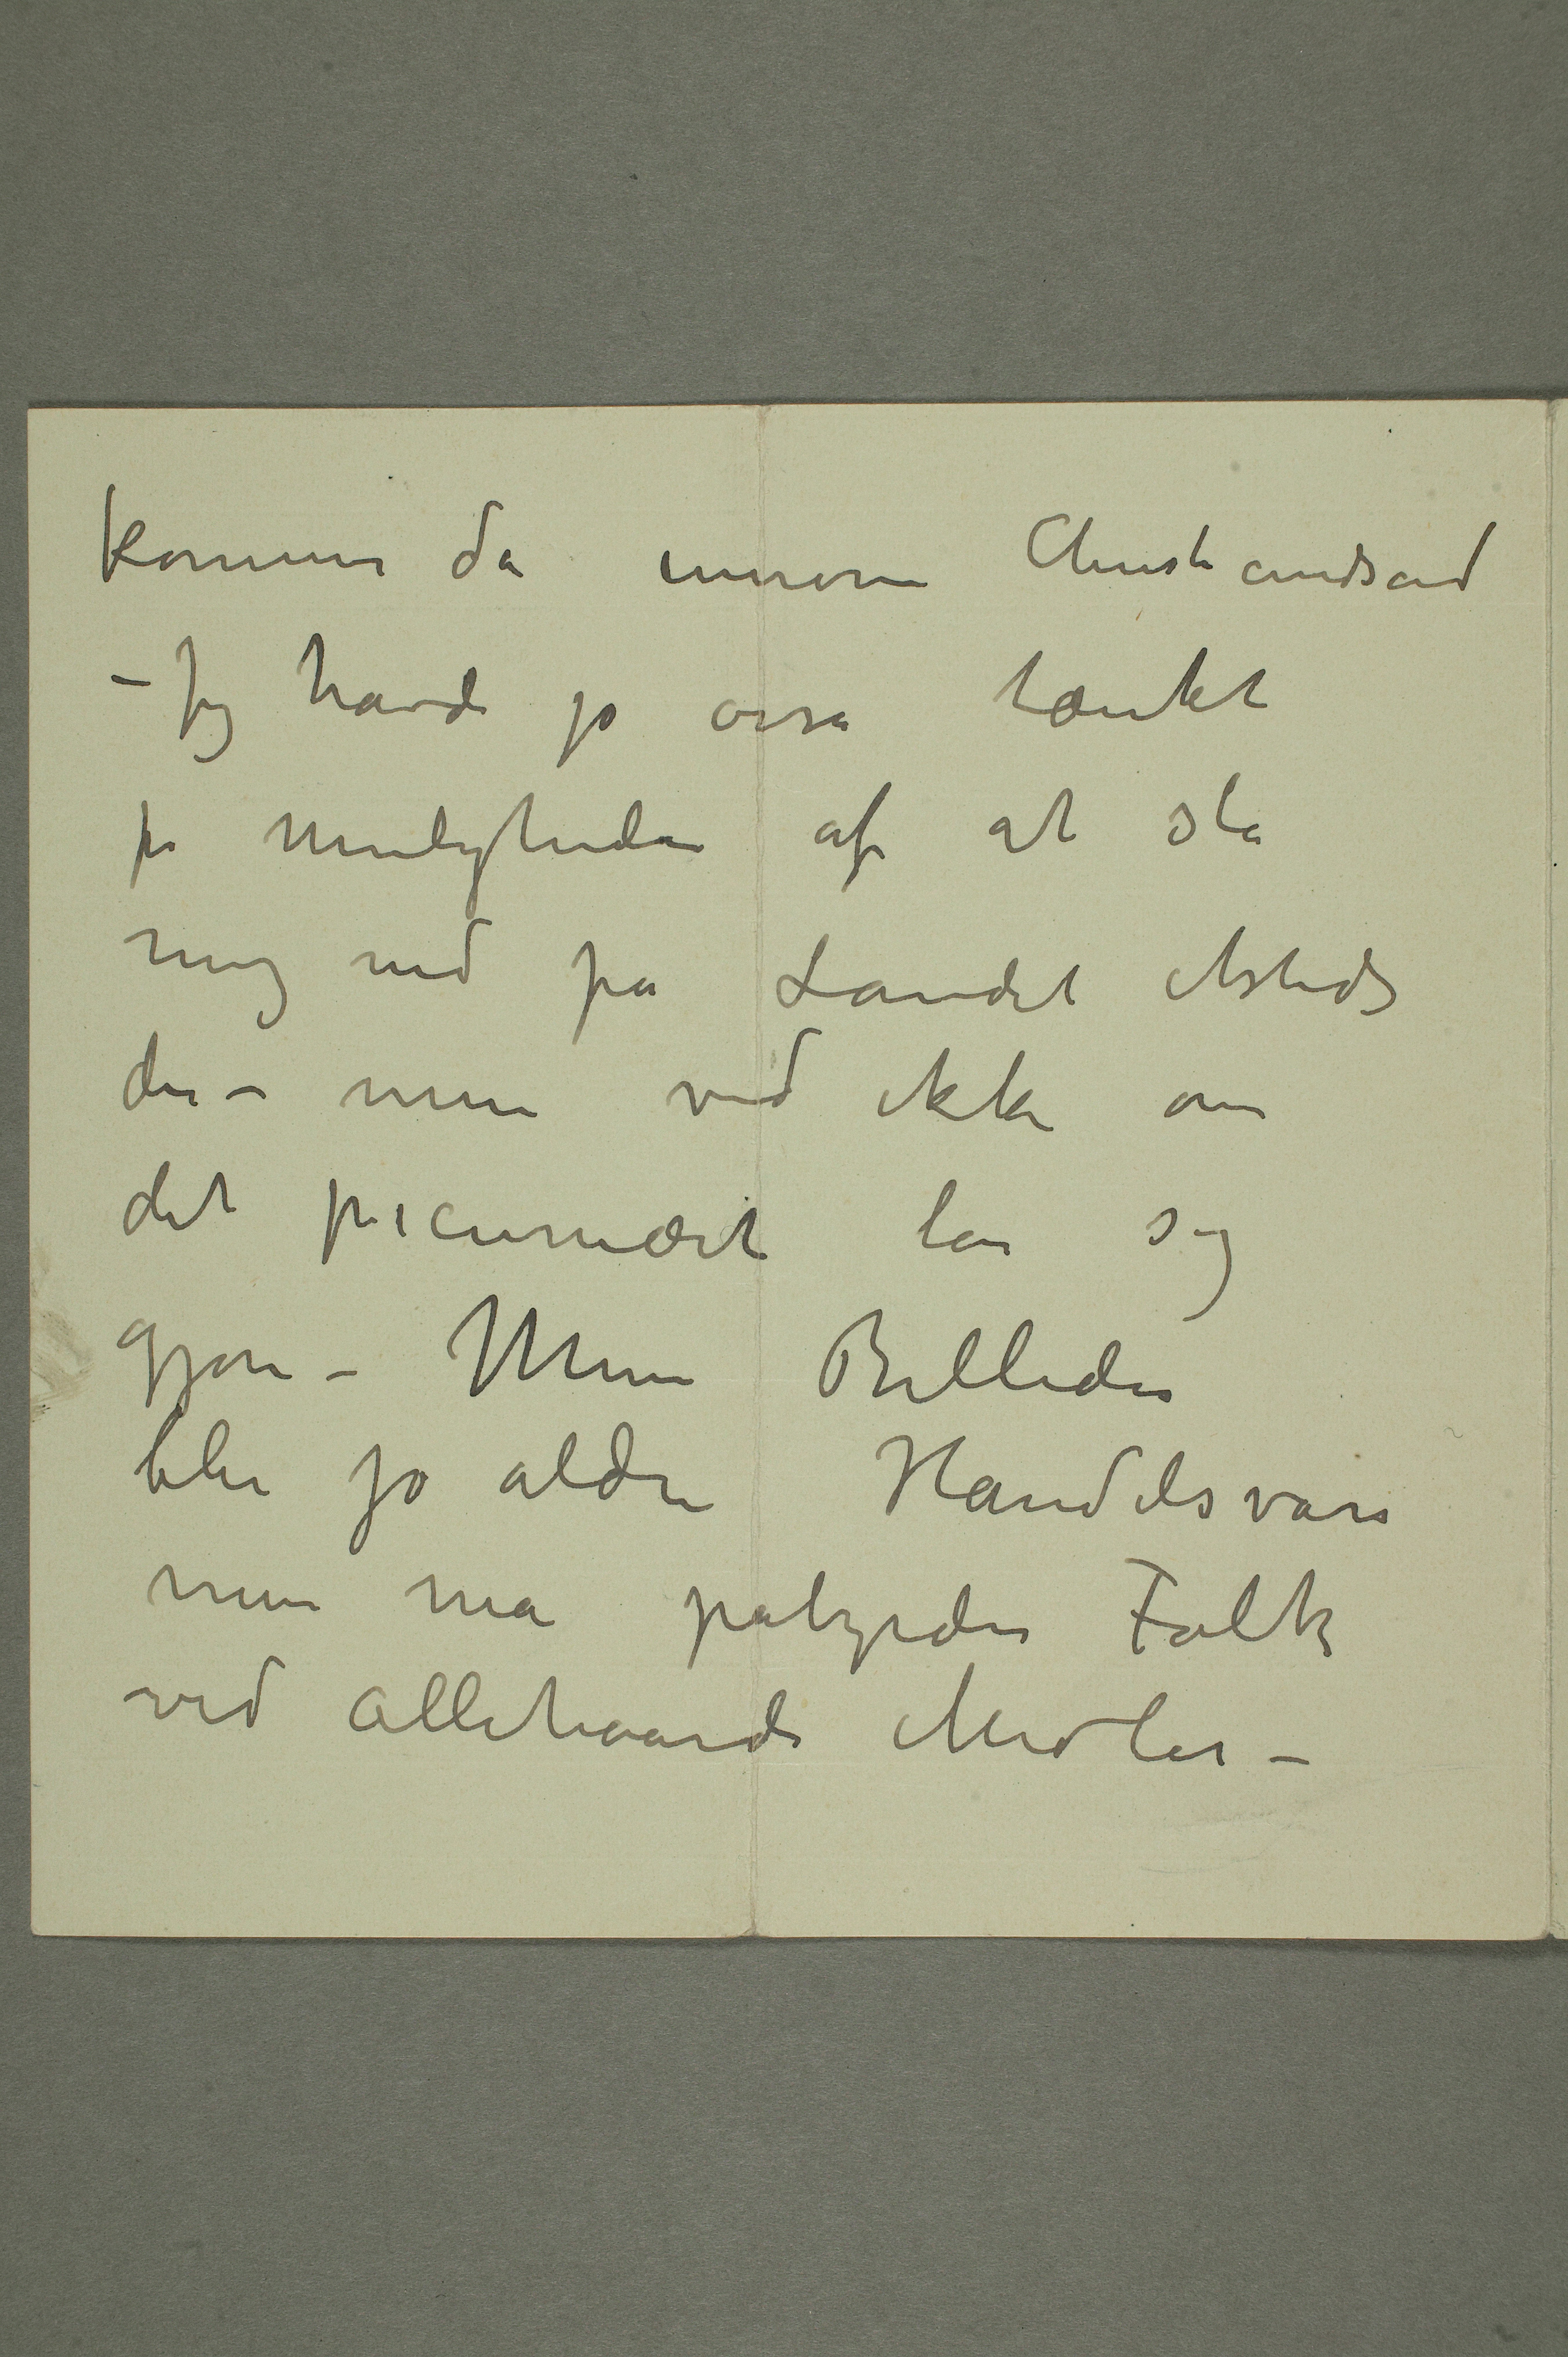 kommer da innom Christiandsand
– Jeg havde jo ossa tænkt
på muligheden af at slå
mig ned på Landet etsteds
der – men ved ikke om
det picunært lar sig
gjøre – Mine Billeder
blir jo aldri Handelsvare
men må påbyrdes Folk
ved allehaande Midler –